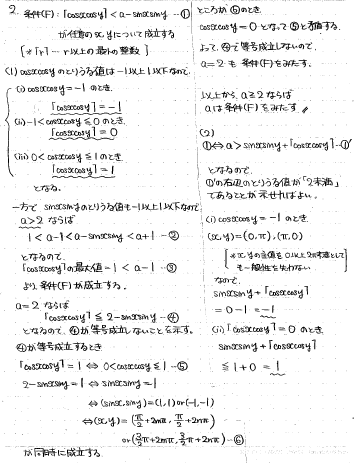 2. 条件(F):「⌈cosxcosy⌉ < a - sinxsiny …①
が任意のx,yについて成立する
[※⌈r⌉…r以上の最小の整数]
(1) cosxcosyのとりうる値は-1以上1以下なので、
(i) cosxcosy = -1 のとき、
⌈cosxcosy⌉ = -1
(ii) -1 < cosxcosy ≦ 0 のとき
⌈cosxcosy⌉ = 0
(iii) 0 < cosxcosy ≦ 1 のとき
⌈cosxcosy⌉ = 1
となる。
一方で sinxsinyのとりうる値も-1以上1以下なので
a>2 ならば
1 < a-1 < a-sinxsiny < a+1 …②
となるので
⌈cosxcosy⌉の最大値 = 1 < a-1 …③
より、条件(F)が成立する。
a=2 ならば
⌈cosxcosy⌉ ≦ 2-sinxsiny …④
となるので、④が等号成立しないことを示す。
④が等号成立するとき
⌈cosxcosy⌉ = 1 ⇔ 0<cosxcosy≦1 …⑤
2-sinxsiny = 1 ⇔ sinxsiny = 1
⇔ (sinx, siny) = (1,1) or (-1,-1)
⇔ (x,y) = (π/2+2mπ, π/2+2nπ)
or (3/2π+2mπ, 3/2π+2nπ) …⑥
が同時に成立する
ところが⑥のとき
cosxcosy = 0 となって⑤と矛盾する。
よって、④で等号成立しないので、
a=2 も 条件(F)をみたす。
以上から、a≧2 ならば
aは条件(F)をみたす。
(2)
①⇔ a > sinxsiny + ⌈cosxcosy⌉ …①'
となるので、
①'の右辺のとりうる値が「2未満」
であることが示せればよい。
(i) cosxcosy = -1 のとき
(x,y) = (0,π), (π,0)
[※x,yの値を0以上2π未満として
も一般性を失わない
なので、
sinxsiny + ⌈cosxcosy⌉
= 0 - 1 = -1
(ii) ⌈cosxcosy⌉ = 0 のとき
sinxsiny + ⌈cosxcosy⌉
≦ 1 + 0 = 1